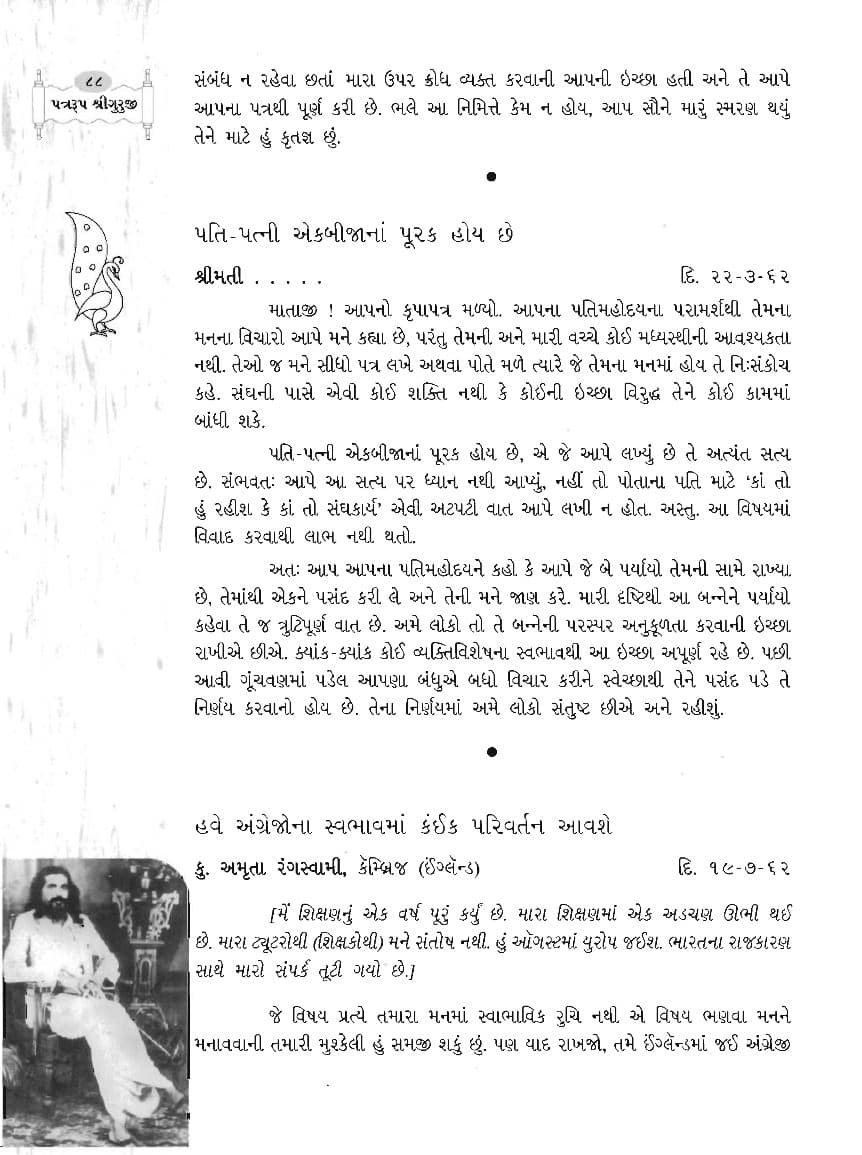 ૮૮
પત્રરૂપ શ્રીગુરુજી
સંબંધ ન રહેવા છતાં મારા ઉપર ક્રોધ વ્યક્ત કરવાની આપની ઇચ્છા હતી અને તે આપે
આપના પત્રથી પૂર્ણ કરી છે. ભલે આ નિમિત્તે કેમ ન હોય, આપ સૌને મારું સ્મરણ થયું
તેને માટે હું કૃતજ્ઞ છું.
●
પતિ-પત્ની એકબીજાનાં પૂરક હોય છે
શ્રીમતી . . . . . દિ. ૨૨-૩-૬૨
માતાજી ! આપનો કૃપાપત્ર મળ્યો. આપના પતિમહોદયના પરામર્શથી તેમના
મનના વિચારો આપે મને કહ્યા છે, પરંતુ તેમની અને મારી વચ્ચે કોઈ મધ્યસ્થીની આવશ્યકતા
નથી. તેઓ જ મને સીધો પત્ર લખે અથવા પોતે મળે ત્યારે જે તેમના મનમાં હોય તે નિઃસંકોચ
કહે. સંઘની પાસે એવી કોઈ શક્તિ નથી કે કોઈની ઇચ્છા વિરુદ્ધ તેને કોઈ કામમાં
બાંધી શકે.
પતિ-પત્ની એકબીજાનાં પૂરક હોય છે, એ જે આપે લખ્યું છે તે અત્યંત સત્ય
છે. સંભવતઃ આપે આ સત્ય પર ધ્યાન નથી આપ્યું, નહીં તો પોતાના પતિ માટે ‘કાં તો
હું રહીશ કે કાં તો સંઘકાર્ય’ એવી અટપટી વાત આપે લખી ન હોત. અસ્તુ. આ વિષયમાં
વિવાદ કરવાથી લાભ નથી થતો.
અતઃ આપ આપના પતિમહોદયને કહો કે આપે જે બે પર્યાયો તેમની સામે રાખ્યા
છે, તેમાંથી એકને પસંદ કરી લે અને તેની મને જાણ કરે. મારી દૃષ્ટિથી આ બન્નેને પર્યાયો
કહેવા તે જ ત્રુટિપૂર્ણ વાત છે. અમે લોકો તો તે બન્નેની પરસ્પર અનુકૂળતા કરવાની ઇચ્છા
રાખીએ છીએ. ક્યાંક-ક્યાંક કોઈ વ્યક્તિવિશેષના સ્વભાવથી આ ઇચ્છા અપૂર્ણ રહે છે. પછી
આવી ગૂંચવણમાં પડેલ આપણા બંધુએ બધો વિચાર કરીને સ્વેચ્છાથી તેને પસંદ પડે તે
નિર્ણય કરવાનો હોય છે. તેના નિર્ણયમાં અમે લોકો સંતુષ્ટ છીએ અને રહીશું.
●
હવે અંગ્રેજોના સ્વભાવમાં કંઈક પરિવર્તન આવશે
કુ. અમૃતા રંગસ્વામી, કૅમ્બ્રિજ (ઈંગ્લૅન્ડ) દિ. ૧૯-૭-૬૨
[મેં શિક્ષણનું એક વર્ષ પૂરું કર્યું છે. મારા શિક્ષણમાં એક અડચણ ઊભી થઈ
છે. મારા ટ્યૂટરોથી (શિક્ષકોથી) મને સંતોષ નથી. હું ઑગસ્ટમાં યુરોપ જઈશ. ભારતના રાજકારણ
સાથે મારો સંપર્ક તૂટી ગયો છે.]
જે વિષય પ્રત્યે તમારા મનમાં સ્વાભાવિક રુચિ નથી એ વિષય ભણવા મનને
મનાવવાની તમારી મુશ્કેલી હું સમજી શકું છું. પણ યાદ રાખજો, તમે ઈંગ્લૅન્ડમાં જઈ અંગ્રેજી